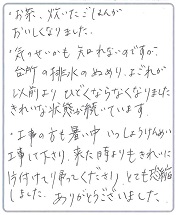 ・お茶、炊いたごはんが
おいしくなりました。
・気のせいかも知れないのですが
台所の排水のぬめり、よごれが
以前より ひどくならなくなりました
きれいな状態が続いています。
・工事の方も暑い中 いっしょうけんめい
工事して下さり、来た時よりもきれいに
片付けて帰ってくださり とても恐縮
しました。ありがとうございました。